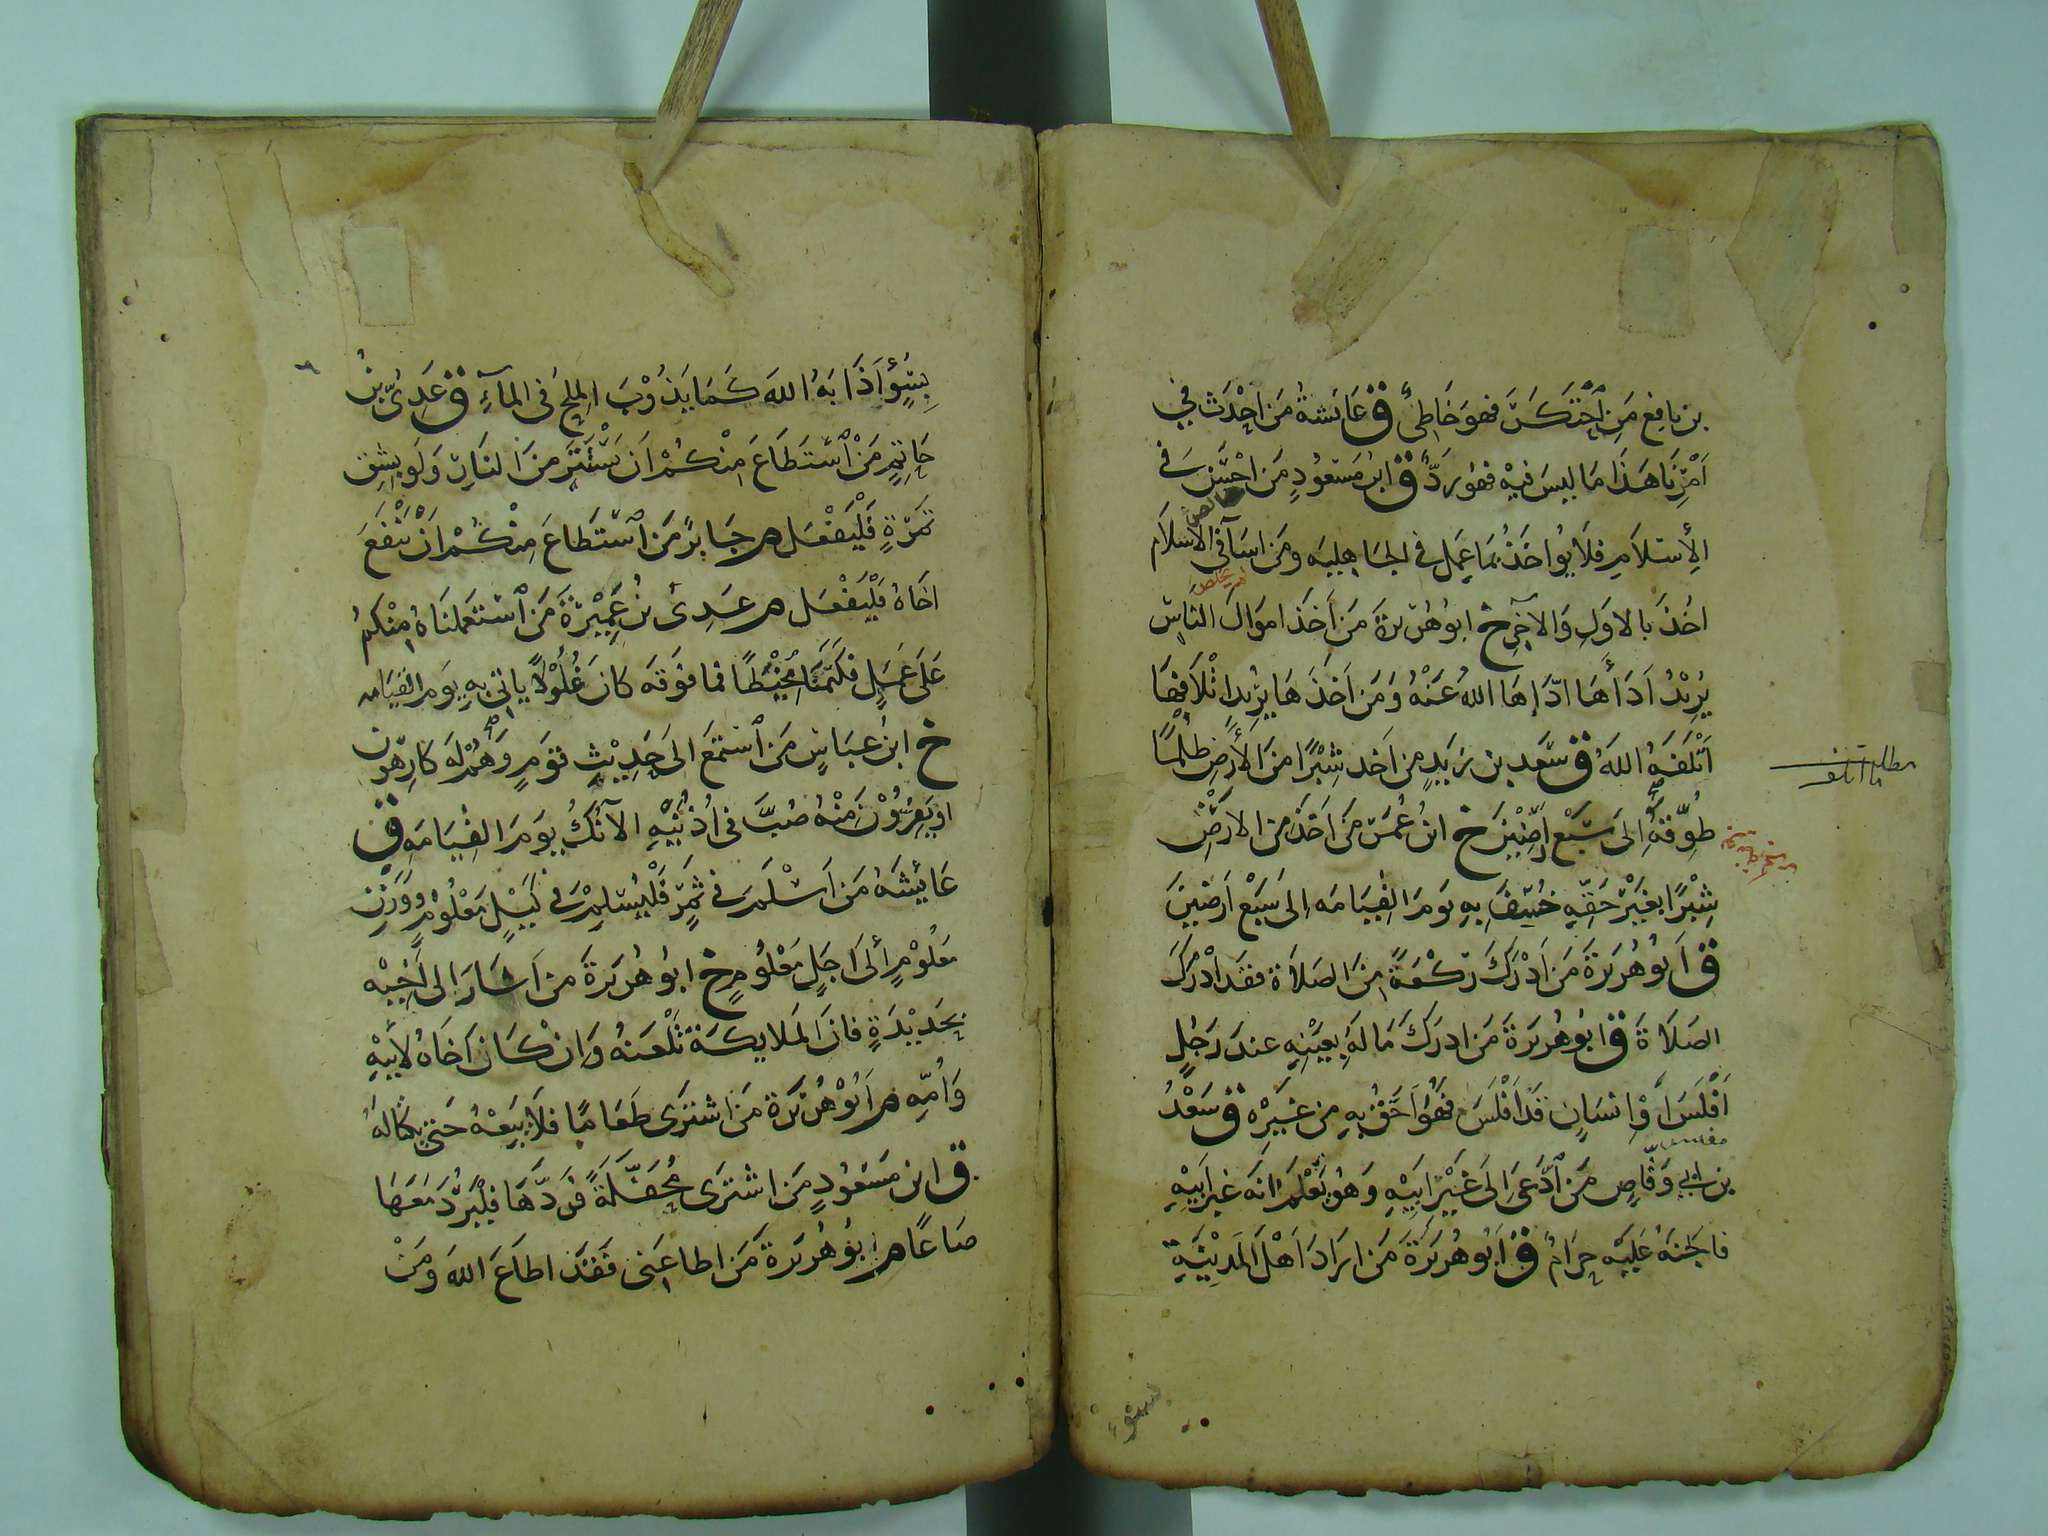 بن نافع مَنِ ٱحْتَكَرَ فهوَ خَاطِئٌ ق عَائشةُ مَن اَحْدَثَ في
اَمْرِنَا هَذَا مَا ليسَ فيهِ فهُو رَدٌّ ق ابن مَسعُودٍ مَن احْسَنَ في
الإسلَامِ فلَا يُواخَذُ بمَا عَمِل في الجَاهِليه ومَن اسَآ في الاسْلَام
اُخذَ بالاولِ وَالآخِرِ خ ابو هُرَيرَةَ مَن اَخذَ اموَالَ النَاسِ
يُرِيْدُ اَدَاَهَا ادَّاهَا اللهُ عَنْهُ وَمَن اَخَذَهَا يُرِيدُ اتْلَافَهَا
اَتْلَفَهُ اللهُ ق سَعيد بن زَيدٍ مِن اَخد شِبْرًا منَ الأَرضِ ظُلمًا
طُوِّقَهُ اِلى سَبْع اَرَضِيْنَ خ ابنُ عُمَرَ مَن اَخَذَ مِنَ الارضِ
شِبْرًا بغَيْرِ حَقِّهِ خُسِفَ بِهِ يَومَ القِيَامَه اِلى سَبْع اَرَضِيْنَ
ق اَبو هُرَيرَةَ مَن اَدْرَكَ رَكْعَةً مِنَ الصَلَاة فقَد اَدْرَكَ
الصَلَاةَ ق ابوُ هُرَيرَةَ مَن ادرَكَ مَالَهُ بِعَيْنِهِ عندَ رَجُلٍ
اَفْلَسَ اَوْ اِنسَانٍ قَد اَفْلَسَ فَهُوَ اَحَقُّ بِهِ مِن غَيرِه ق سَعْدُ
بن ابي وَقَّاصٍ مَن ٱدَّعَى اِلَى غَيْرِ اَبِيْهِ وَهُو يَعْلَمُ انهَ غير اَبيْهِ
فالجَنهُ عَليْه حَرَامٌ ق اَبُو هُرَيرَةَ مَن ارَادَ اَهْلَ المَدِيْنَةِ
بِسُوْءٍ اَذَابَهُ اللهَ كَمَا يَذُوْبَ المِلحُ في المآءِ ق عَدِىُّ بنُ
حَاتِمٍ مَنْ ٱسْتَطَاعَ مِنْكُمْ اَن يَسْتَتِرَ منَ النَارِ وَلَو بِشِقِ
تَمَرْةٍ فَلْيَفْعَل م جَابرٌ مَن ٱسْتَطاعَ مِنْكُمْ اَنْ يَنْفَعَ
اخَاهُ فَلْيَفْعَل م عَدِىُ بنُ عَمِيْرَةَ مَن ٱسْتَعمَلنَاهُ مِنْكمُ
عَلَى عَمَلٍ فكَتَمَنَا مِخْيَطًا فما فوَقَه كانَ غُلُوْلًا ياتِى بِهِ يومَ القيَامه
خ ابنُ عبَاسٍ مَن ٱستمَعَ الىَ حَدِيْثِ قومٍ وَهُمْ لَه كارِهون
او يَفِرُّوْنَ مِنْهُ صُبَّ في اُذُنَيْهِ الآنُكُ يومَ القِيَامَهِ ق
عَائيشهُ مَن اَسْلَمَ في ثمَرٍ فَلْيُسْلِمْ في كَيْلٍ مَعْلُوْمٍ وَوَزنٍ
مَعلُوْمٍ اِلَى اَجَلٍ مَعْلُوُمٍ خ ابوُ هُرَيرَةَ من اَشَارَ الى اَخِيْه
بحَديْدَةٍ فانَ المَلايكَة تَلْعَنهُ وَانْ كَانَ اَخَاهُ لأَبيْهِ
وَاُمِّهِ م اَبُوْ هُرَيْرَة مَن اشتَرَى طَعَامًا فلَا يَبِعْهُ حَتى يكتَالهُ
ق ابن مَسْعُوُدٍ مَن اشتَرَى مُحَفَّلَةً فَرَدَّهَا فليْرُدَّ مَعَهَا
صَاعًا م ابوُ هُرَيرَةَ مَن اطاعَنى فَقَد اطَاعَ اللهَ ومَنْ
بسوء